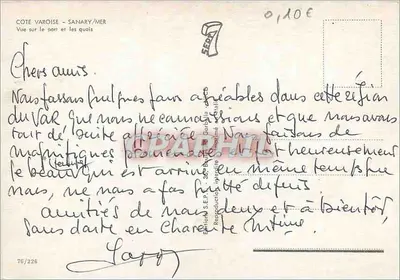 COTE VAROISE - SANARY/MER
Vue sur le port et les quais
0,10€
SEPA
Chers amis.
Nous passons quelques jours agréables dans cette région
du Var que nous ne connaissions et que nous avons
tout de suite appréciée. Nous faisons de
magnifiques promenades heureusement
le beau temps qui est arrivé en même temps que
nous, ne nous a pas quitté depuis.
amitiés de nous deux et à bientôt,
sans doute en Charente Mme.
76/226